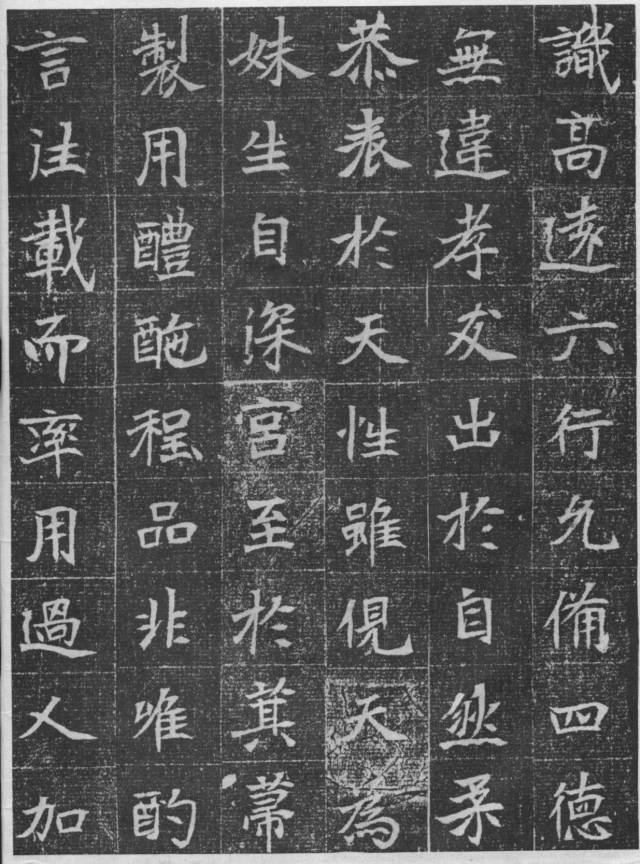 識高遠六行允備四德
無違孝友出於自然柔
恭表於天性雖俔天為
妹生自深宮至於萁蒂
製用醴酏程品非唯酌
言往載而率用過人加